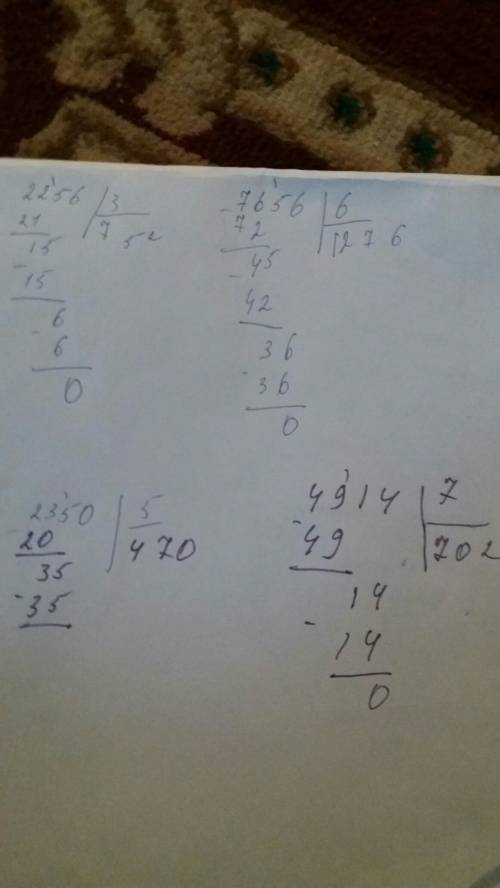 2256 | 3
21 | 752
15
- 15
6
- 6
0
- 7656 | 6
72 | 1276
- 45
42
36
- 36
0
2350 | 5
- 20 | 470
35
- 35
4914 | 7
- 49 | 702
14
- 14
0